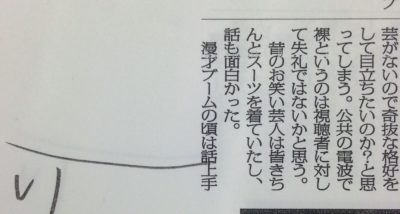 芸がないので奇抜な格好を
して目立ちたいのか?と思
ってしまう。公共の電波で
裸というのは視聴者に対し
て失礼ではないかと思う。
昔のお笑い芸人は皆きち
んとスーツを着ていたし、
話も面白かった。
漫才ブームの頃は話上手